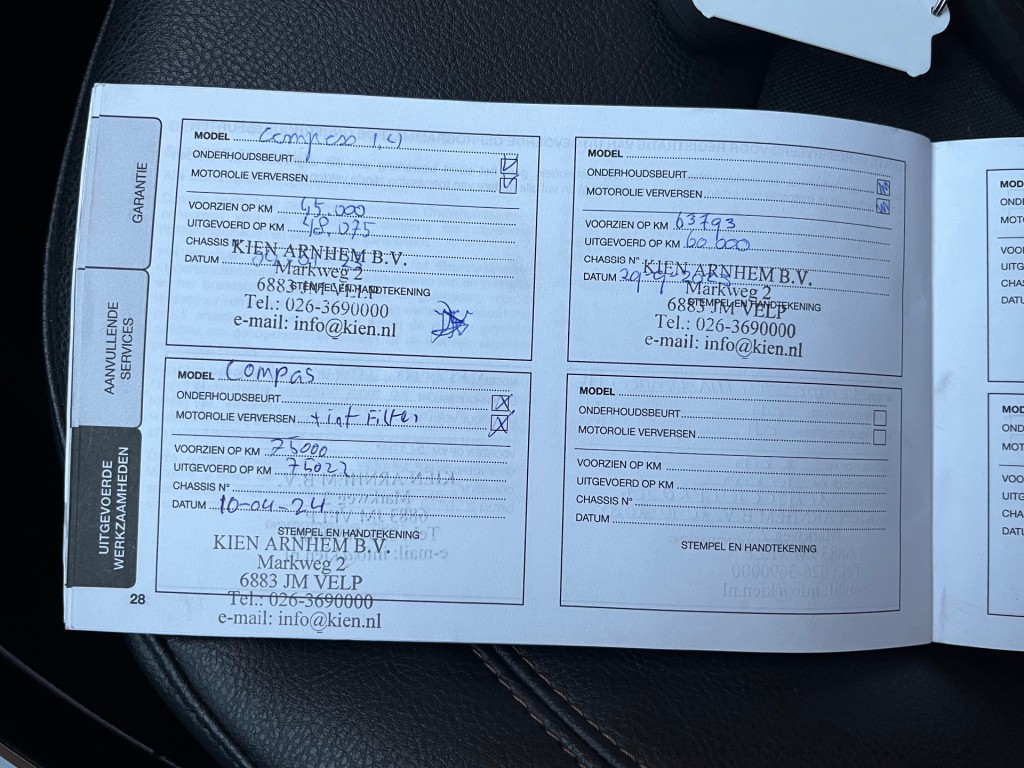 GARANTIE
AANVULLENDE
SERVICES
UITGEVOERDE
WERKZAAMHEDEN
MODEL Compass 1,4
ONDERHOUDSBEURT
MOTOROLIE VERVERSEN
VOORZIEN OP KM 45.000
UITGEVOERD OP KM 48.075
CHASSIS N°
DATUM
STEMPEL EN HANDTEKENING
KIEN ARNHEM B.V.
Markweg 2
6883 JM VELP
Tel.: 026-3690000
e-mail: info@kien.nl
MODEL
ONDERHOUDSBEURT
MOTOROLIE VERVERSEN
VOORZIEN OP KM 63793
UITGEVOERD OP KM 60.000
CHASSIS N°
DATUM 29-9-2023
STEMPEL EN HANDTEKENING
KIEN ARNHEM B.V.
Markweg 2
6883 JM VELP
Tel.: 026-3690000
e-mail: info@kien.nl
MODEL Compas
ONDERHOUDSBEURT
MOTOROLIE VERVERSEN + int Filter
VOORZIEN OP KM 75000
UITGEVOERD OP KM 75022
CHASSIS N°
DATUM 10-04-24
STEMPEL EN HANDTEKENING
KIEN ARNHEM B.V.
Markweg 2
6883 JM VELP
Tel.: 026-3690000
e-mail: info@kien.nl
MODEL
ONDERHOUDSBEURT
MOTOROLIE VERVERSEN
VOORZIEN OP KM
UITGEVOERD OP KM
CHASSIS N°
DATUM
STEMPEL EN HANDTEKENING
28